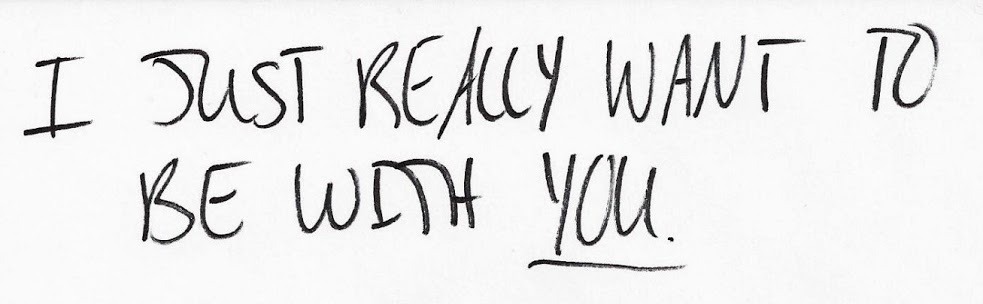 I JUST REALLY WANT TO
BE WITH YOU.